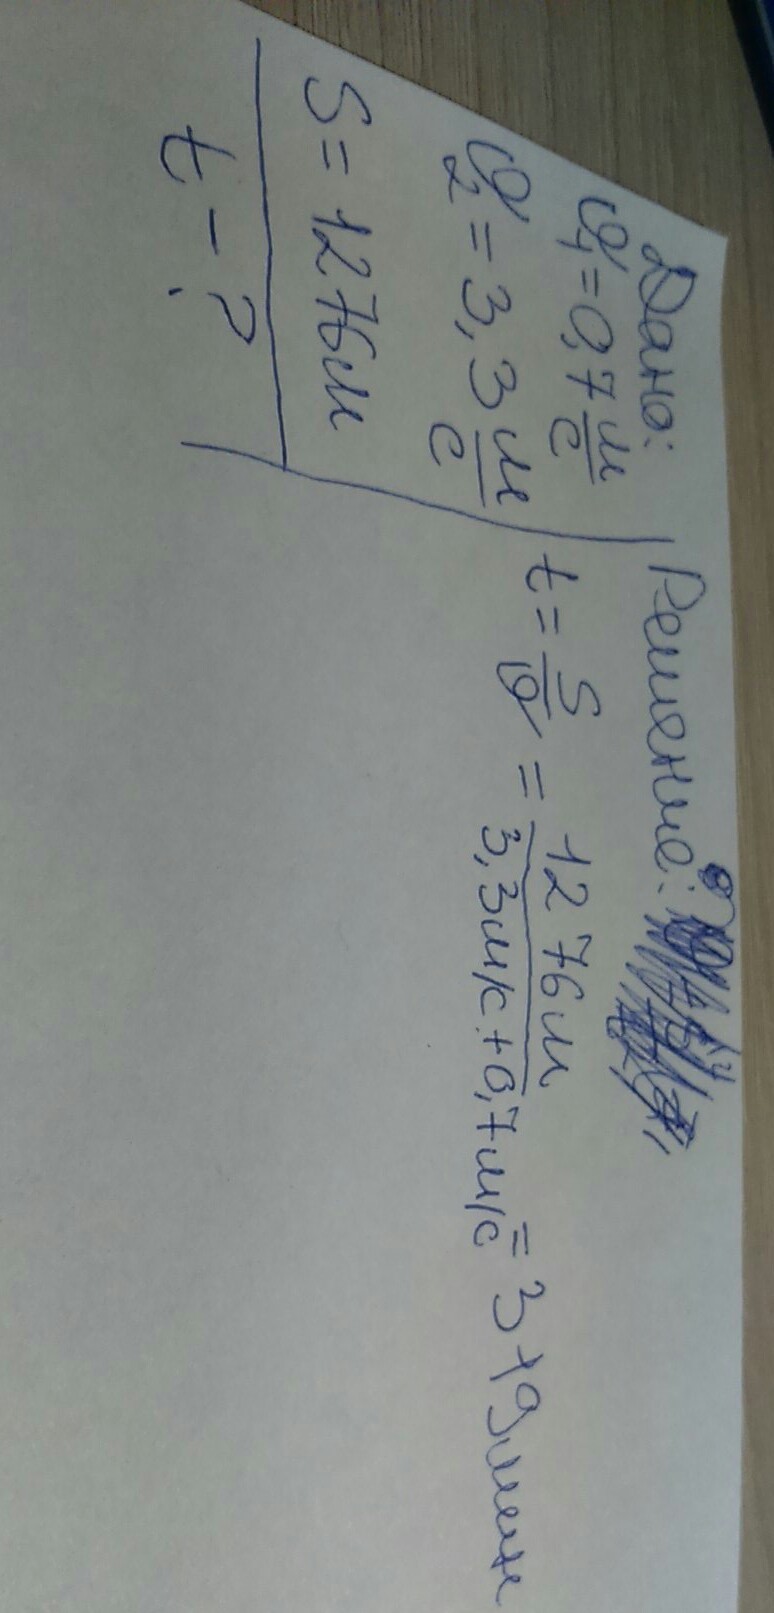 Дано:
v₁ = 0,7 м/с
v₂ = 3,3 м/с
S = 1276м
t - ?
Решение:
t = S/v = 1276м / 3,3м/с + 0,7м/с = 319мин